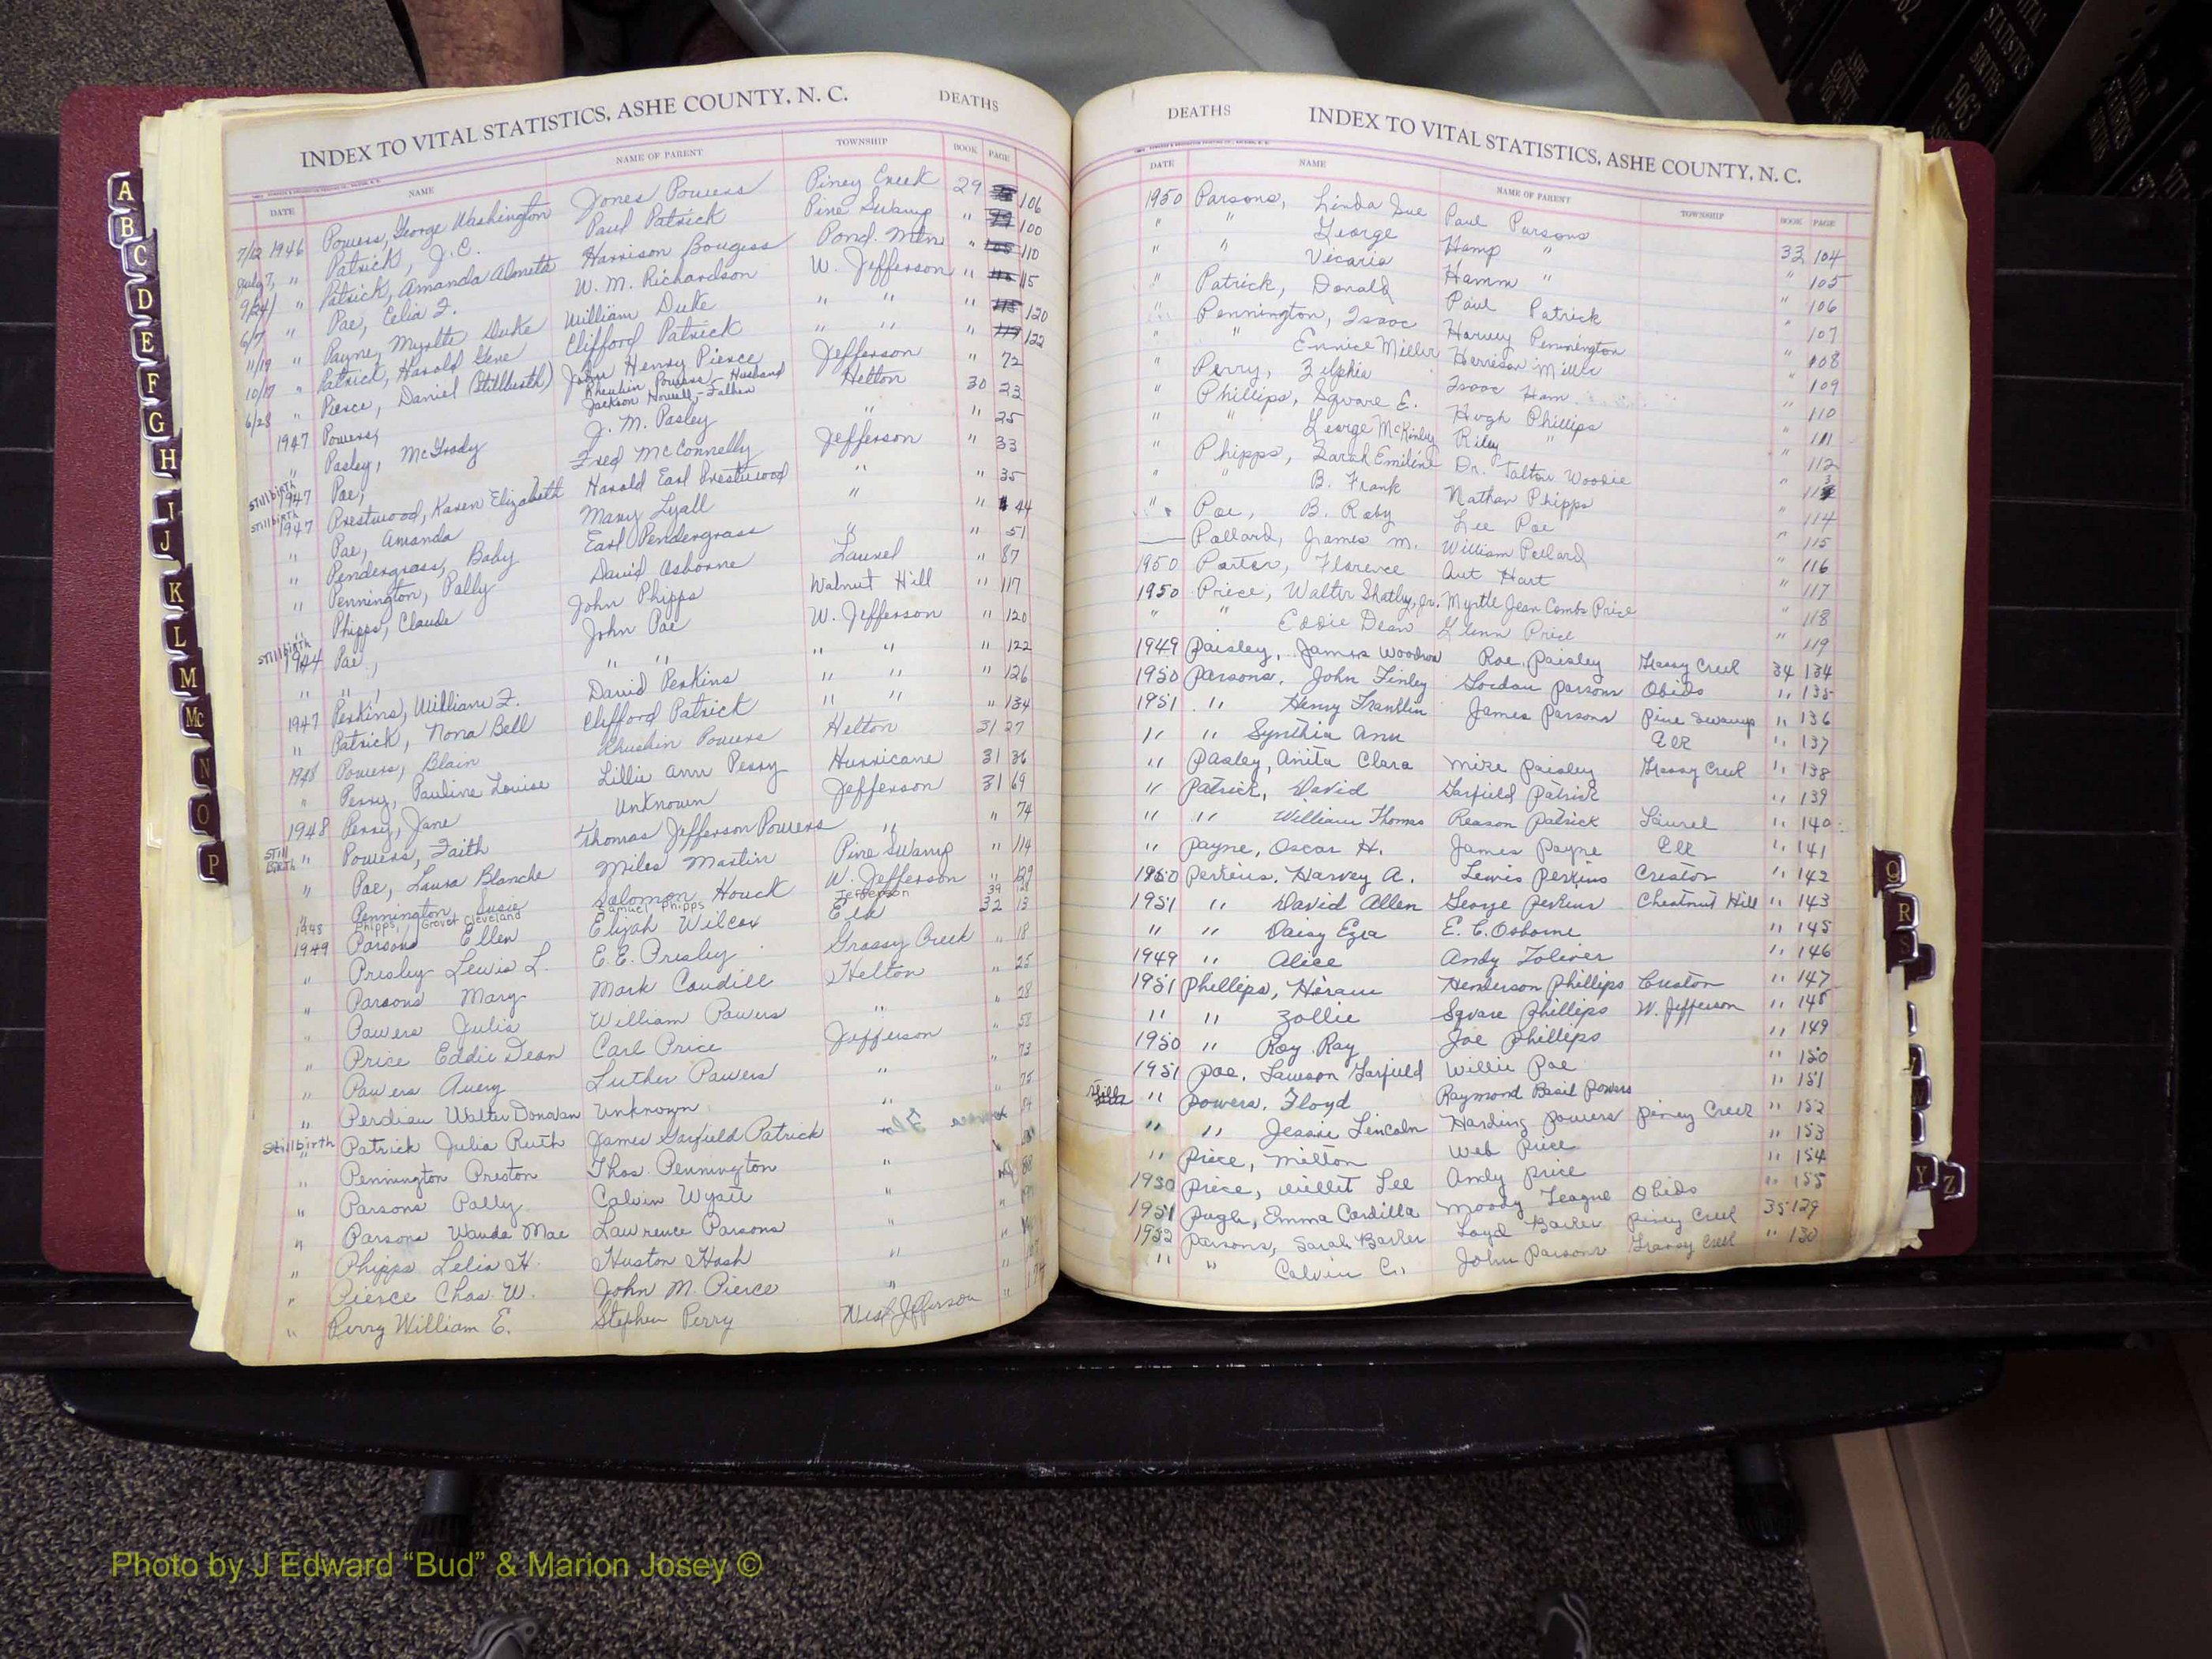 INDEX TO VITAL STATISTICS, ASHE COUNTY, N. C. DEATHS
DATE NAME NAME OF PARENT TOWNSHIP BOOK PAGE
7/12 1946 Powers, George Washington Jones Powers Piney Creek 29 106
July 7, " Patrick, J.C. Paul Patrick Pine Swamp " 100
9/24/ " Patrick, Amanda Almeta Harrison Bougess Pond. Mtn " 110
6/7 " Poe, Celia F. W. M. Richardson W. Jefferson " 115
11/19 " Payne, Myrtle Duke William Duke " " " 120
10/17 " Patrick, Harold Gene Clifford Patrick " " " 122
6/28 " Pierce, Daniel (Stillbirth) John Henry Pierce Jefferson " 72
1947 Powers, Rheubin Powers - Husband Jackson Howell - Father Helton 30 23
" Pasley, McGrady J. M. Pasley " " 25
Stillbirth 1947 Poe, Fred McConnelly Jefferson " 33
Stillbirth 1947 Prestwood, Karen Elizabeth Harald Earl Prestwood " " 35
" Poe, Amanda Mary Lyall " 44
" Pendergrass, Baby Earl Pendergrass " " 51
" Pennington, Polly David Osborne Laurel " 87
" Phipps, Claude John Phipps Walnut Hill " 117
Stillbirth 1944 Poe, John Poe W. Jefferson " 120
" " , " " " " " 122
1947 Perkins, William F. David Perkins " " " 126
" Patrick, Nora Bell Clifford Patrick " " " 134
1948 Powers, Blain Rheubin Powers Helton 31 27
" Perry, Pauline Louise Lillie Ann Perry Hurricane 31 36
1948 Perry, Jane Unknown Jefferson 31 69
Still Birth " Powers, Faith Thomas Jefferson Powers " " 74
" Poe, Laura Blanche Miles Martin Pine Swamp " 114
" Pennington, Susie Solomon Houck W. Jefferson " 129
1948 Phipps, Grover Cleveland Samuel Phipps Jefferson 39 128
1949 Parsons Ellen Elijah Wilcox Elk 32 13
" Presley Lewis L. E.E. Presley Grassy Creek " 18
" Parsons Mary Mark Caudill Helton " 25
" Powers Julia William Powers " " 28
" Price Eddie Dean Carl Price Jefferson " 58
" Powers Avery Luther Powers " " 73
" Perdieu Walter Donovan Unknown " " 75
Stillbirth " Patrick Julia Ruth James Garfield Patrick 84
" Pennington Preston Thos. Pennington "
" Parsons Polly Calvin Wyatt " 88
" Parsons Wanda Mae Lawrence Parsons "
" Phipps Lelia H. Huston Hash "
" Pierce Chas. W. John M. Pierce "
" Perry William E. Stephen Perry West Jefferson "
DEATHS INDEX TO VITAL STATISTICS, ASHE COUNTY, N. C.
DATE NAME NAME OF PARENT TOWNSHIP BOOK PAGE
1950 Parsons, Linda Sue Paul Parsons 33 104
" " George Hamp " " 105
" " Vicaria Hamm " " 106
" Patrick, Donald Paul Patrick " 107
" Pennington, Isaac Harvey Pennington " 108
" " Ennice Miller Harrison Miller " 109
" Perry, Zilphia Isaac Ham " 110
" Phillips, Square E. Hugh Phillips " 111
" " George McKinley Riley " " 112
" Phipps, Sarah Emiline Dr. Talton Woodie " 113
" " B. Frank Nathan Phipps " 114
" Poe, B. Roby Lee Poe " 115
Pollard, James M. William Pollard " 116
1950 Porter, Florence Aut Hart " 117
1950 Price, Walter Shatley, Jr. Myrtle Jean Combs Price " 118
" " Eddie Dean Glenn Price " 119
1949 Paisley, James Woodrow Roe Paisley Grassy Creek 34 134
1950 Parsons, John Finley Gordan Parsons Obids " 135
1951 " Henry Franklin James Parsons Pine Swamp " 136
" " Synthia Ann Elk " 137
" Pasley, Anita Clara Mize Paisley Grassy Creek " 138
" Patrick, David Garfield Patrick " 139
" " William Thomas Reason Patrick Laurel " 140
" Payne, Oscar H. James Payne Elk " 141
1950 Perkins, Harvey A. Lewis Perkins Creston " 142
1951 " David Allen George Perkins Chestnut Hill " 143
" " Daisy Ezra E. C. Osborne " 145
1949 " Alice Andy Toliver " 146
1951 Phillips, Hiram Henderson Phillips Creston " 147
" " Zollie Square Phillips W. Jefferson " 148
1950 " Roy Ray Joe Phillips " 149
1951 Poe, Lawson Garfield Willie Poe " 150
" Powers, Floyd Raymond Basil Powers " 151
" " Jessie Lincoln Harding Powers Piney Creek " 152
" Price, Milton Web Price " 153
1950 Price, Millet Lee Andy Price " 154
1951 Pugh, Emma Cordilla Moody Teague Obids " 155
1952 Parsons, Sarah Barker Loyd Barker Piney Creek 35 129
" " Calvin C. John Parsons Grassy Creek " 130
A
B
C
D
E
F
G
H
I
J
K
L
M
Mc
N
O
P
Q
R
S
W
Y
Z
VITAL STATISTICS BIRTHS 1963
ASHE COUNTY
Photo by J Edward “Bud” & Marion Josey ©